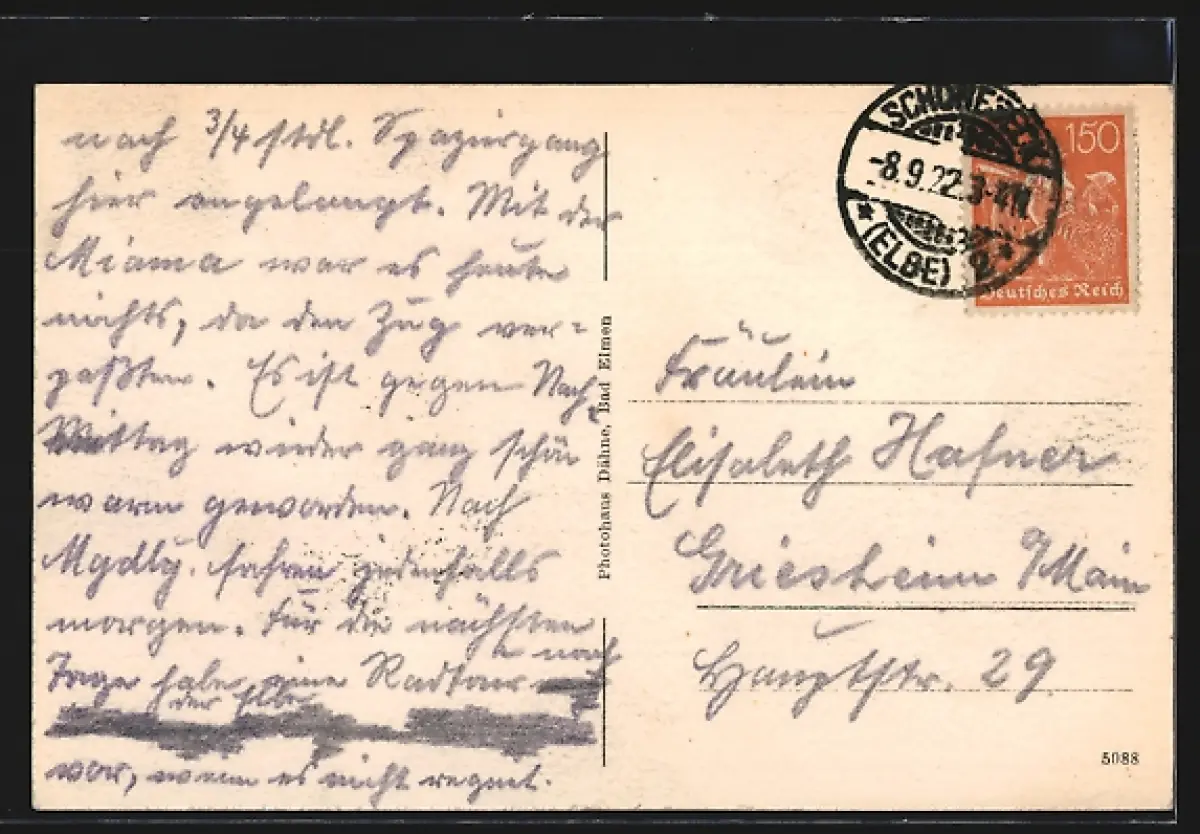 nach 3/4 stdl. Spaziergang
hier angelangt. Mit der
Miama war es heute
nichts, da den Zug ver=
paßten. Es ist gegen Nach=
Mittag wieder ganz schön
warm geworden. Nach
Mgdbg. fahren jedenfalls
morgen. Für die nächsten
Tage habe eine Radtour nach
der Elbe
vor, wenn es nicht regnet.
Photohaus Dähne, Bad Elmen
SCHÖNEBECK
-8.9.22.3-4N
* (ELBE) 2 *
150
Deutsches Reich
Fräulein
Elisabeth Hafner
Griesheim /Main
Hauptstr. 29
5088